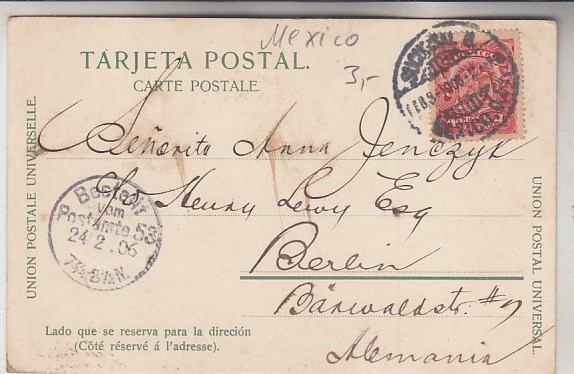 Mexico
3,-
TARJETA POSTAL.
CARTE POSTALE.
FEB 9
Señorita Anna Jenczyk
c/o Henry Lewy Esq
Berlin
Bärwaldstr. #
Alemania
Bestellt
vom
Postamte 53
24 2.06
7¾-8½N.
UNION POSTALE UNIVERSELLE.
UNION POSTAL UNIVERSAL.
Lado que se reserva para la direción
(Côté réservé á l'adresse).